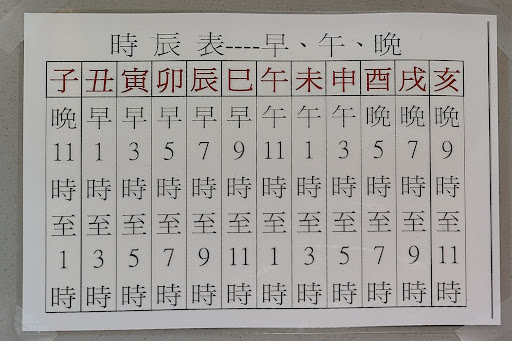 時辰表----早、午、晚
子丑寅卯辰巳午未申酉戌亥
晚早早早早早午午午晚晚晚
11 1 3 5 7 9 11 1 3 5 7 9
時時時時時時時時時時時時
至至至至至至至至至至至至
1 3 5 7 9 11 1 3 5 7 9 11
時時時時時時時時時時時時